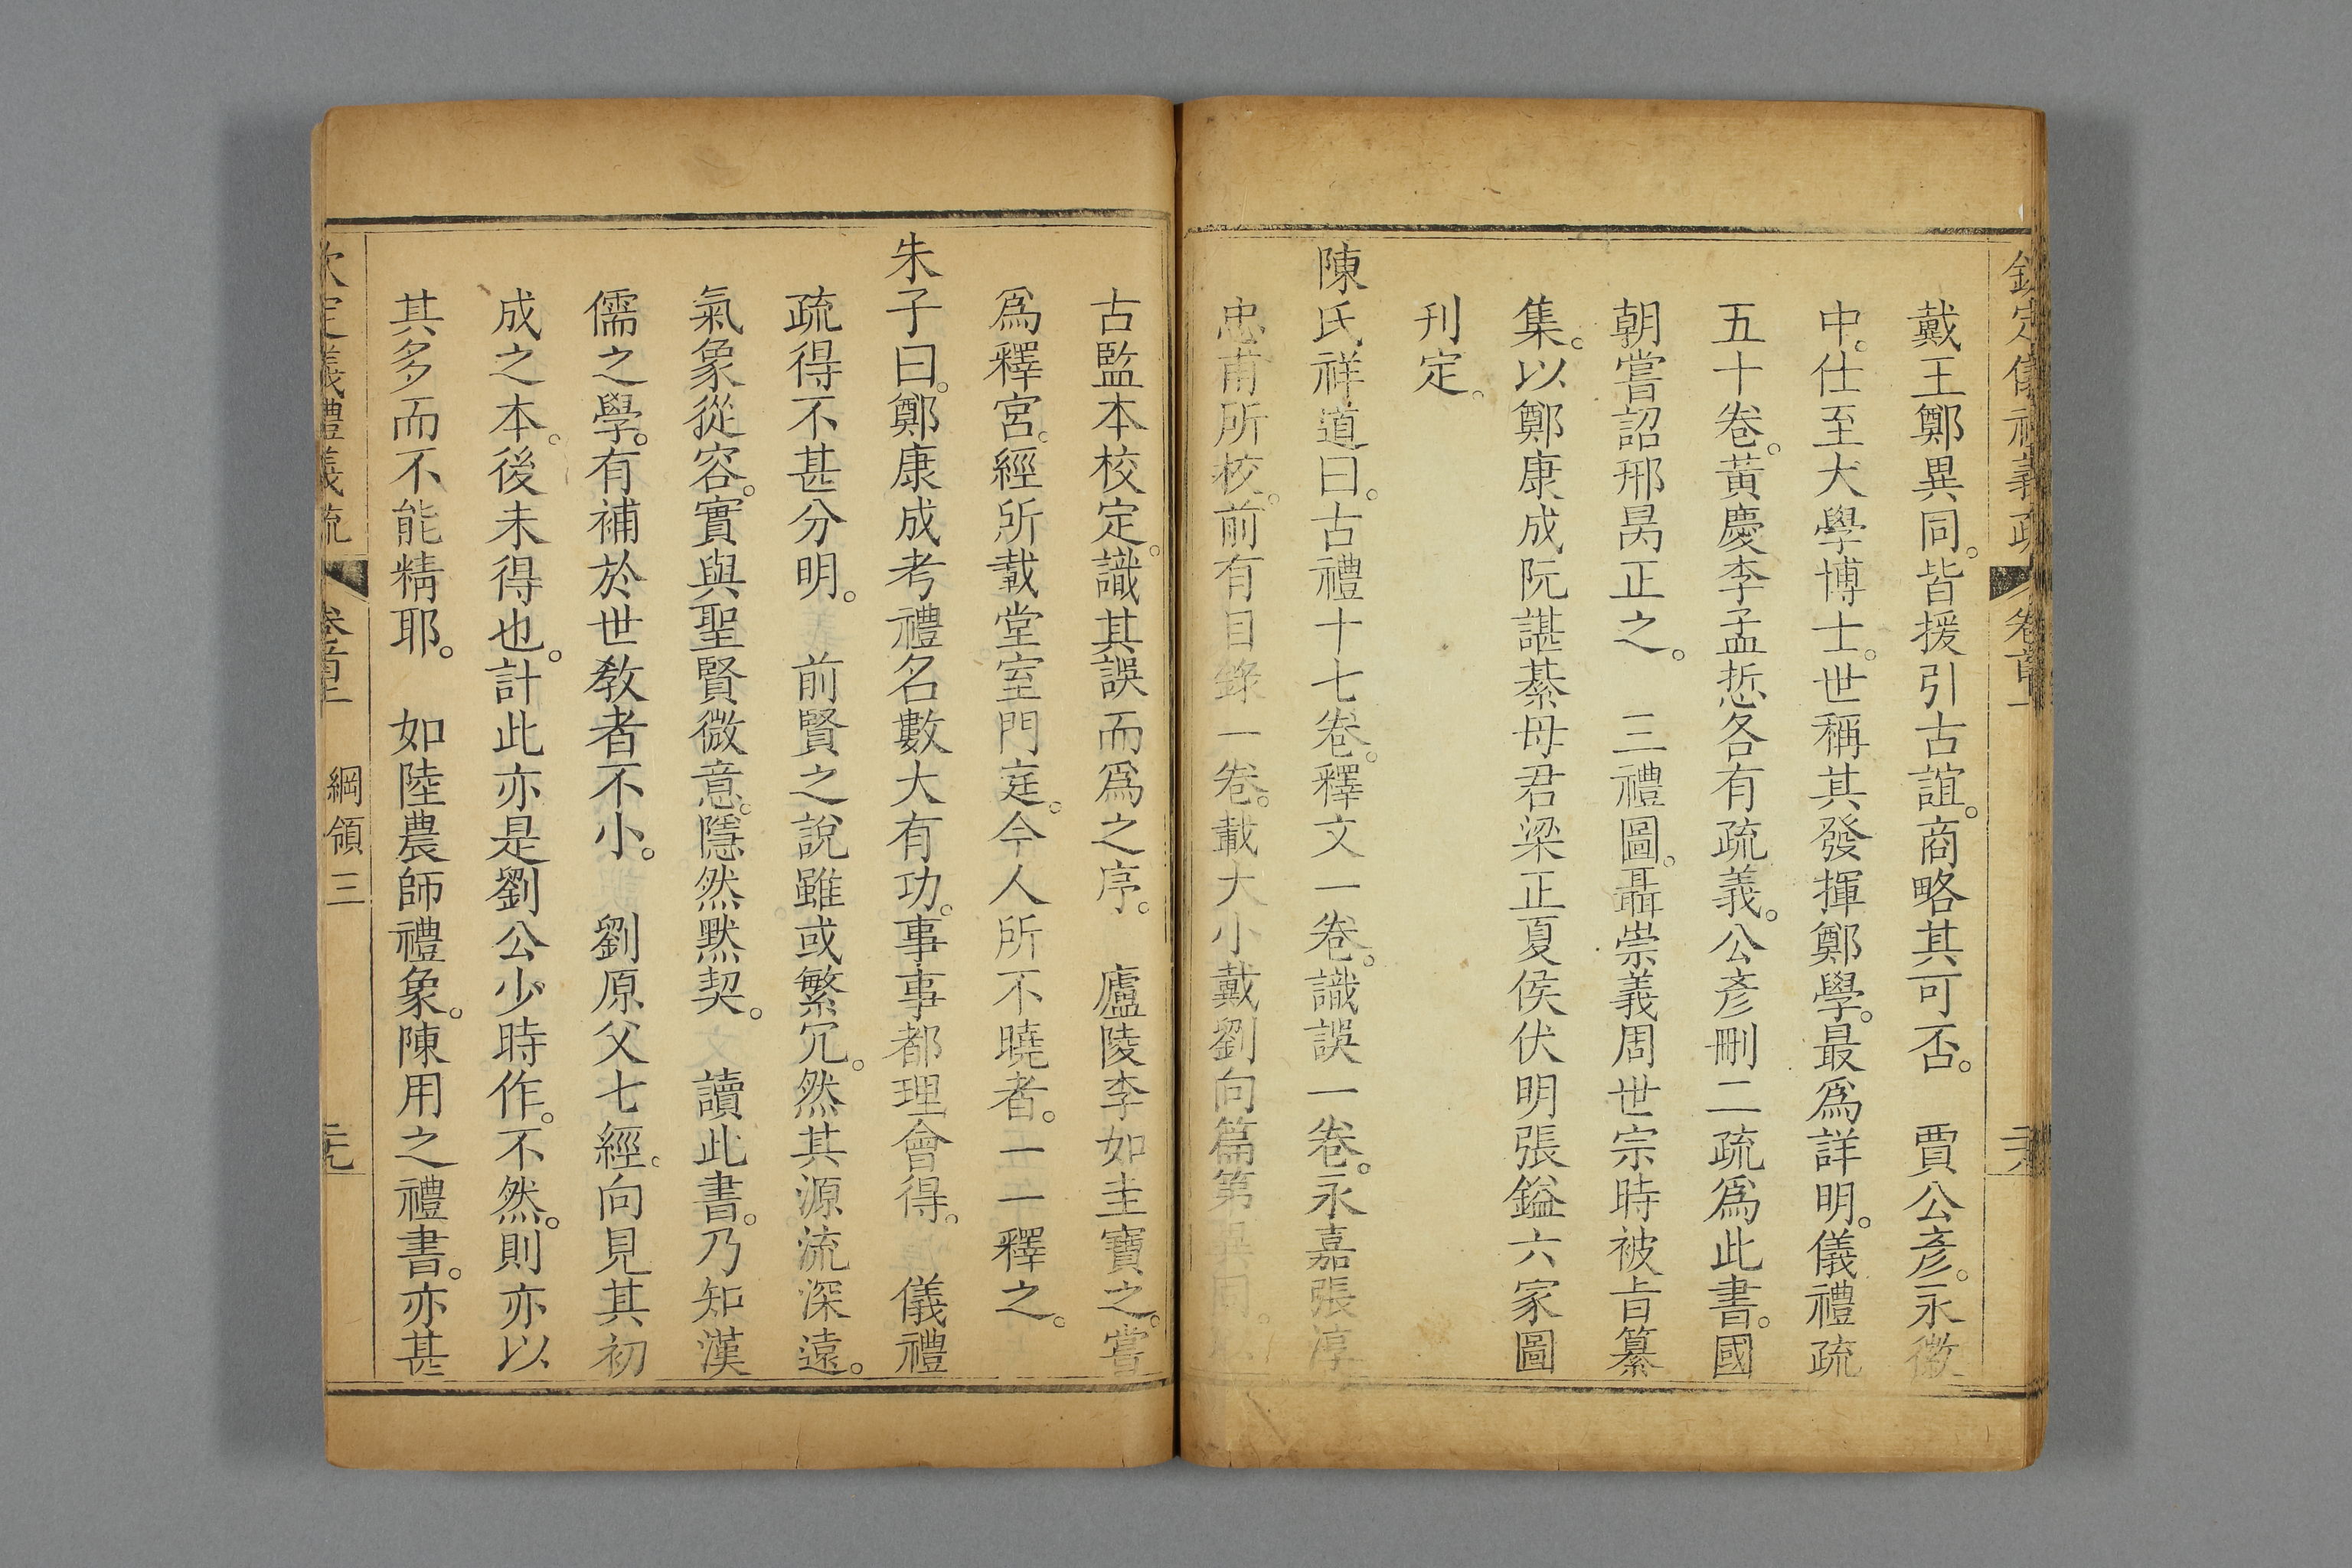 欽定儀禮義疏 卷首上
戴王鄭異同。皆援引古誼。商略其可否。 賈公彥。永徽
中。仕至大學博士。世稱其發揮鄭學。最爲詳明。儀禮疏
五十卷。黃慶李孟悊各有疏義。公彥刪二疏爲此書。國
朝嘗詔邢昺正之。 三禮圖。聶崇義周世宗時被旨纂
集。以鄭康成阮諶綦母君梁正夏侯伏明張鎰六家圖
刊定。
陳氏祥道曰。古禮十七卷。釋文一卷。識誤一卷。永嘉張淳
忠甫所校。前有目錄一卷。載大小戴劉向篇第異同。以
古監本校定。識其誤而爲之序。 廬陵李如圭寶之。嘗
爲釋宮。經所載堂室門庭。今人所不曉者。一一釋之。
朱子曰。鄭康成考禮名數大有功。事事都理會得。 儀禮
疏得不甚分明。 前賢之說雖或繁冗。然其源流深遠。
氣象從容。實與聖賢微意。隱然默契。 讀此書。乃知漢
儒之學。有補於世敎者不小。 劉原父七經。向見其初
成之本。後未得也。計此亦是劉公少時作。不然。則亦以
其多而不能精耶。 如陸農師禮象。陳用之禮書。亦甚
欽定儀禮義疏 卷首上 綱領三